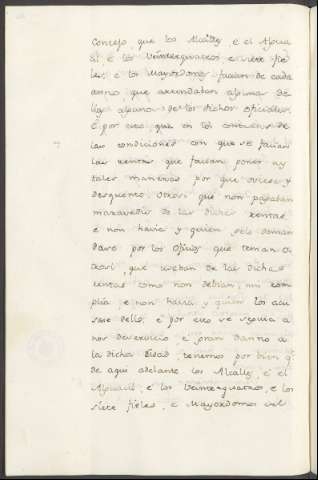 Concejo, que los Alcalles, e el Alguacil, e los veintequatros e siete fieles, e los Mayordomos facian de cada anno, que arrendaban alguna de
los dichos oficiales.
E por eso, que en los
las condiciones con que se facian
las rentas que facian poner ay
tales maneras por que oviese y
desquento. Otrosi que non pagaban
maravedis de las dichas rentas
e non havia y quien gelo deman
dase por los oficios que tenian. O
trosi, que usaban de las dichas
rentas como non debian, nin com
plia e non havia y quien los acu
sase dello. e por eso se seguia a
nos deservicio, e gran danno a
la dicha Cibdad, tenemos por bien q.
de aqui adelante los Alcalles, e el
Alguacil, e los veintequatros, e los
siete fieles, e Mayordomos nin